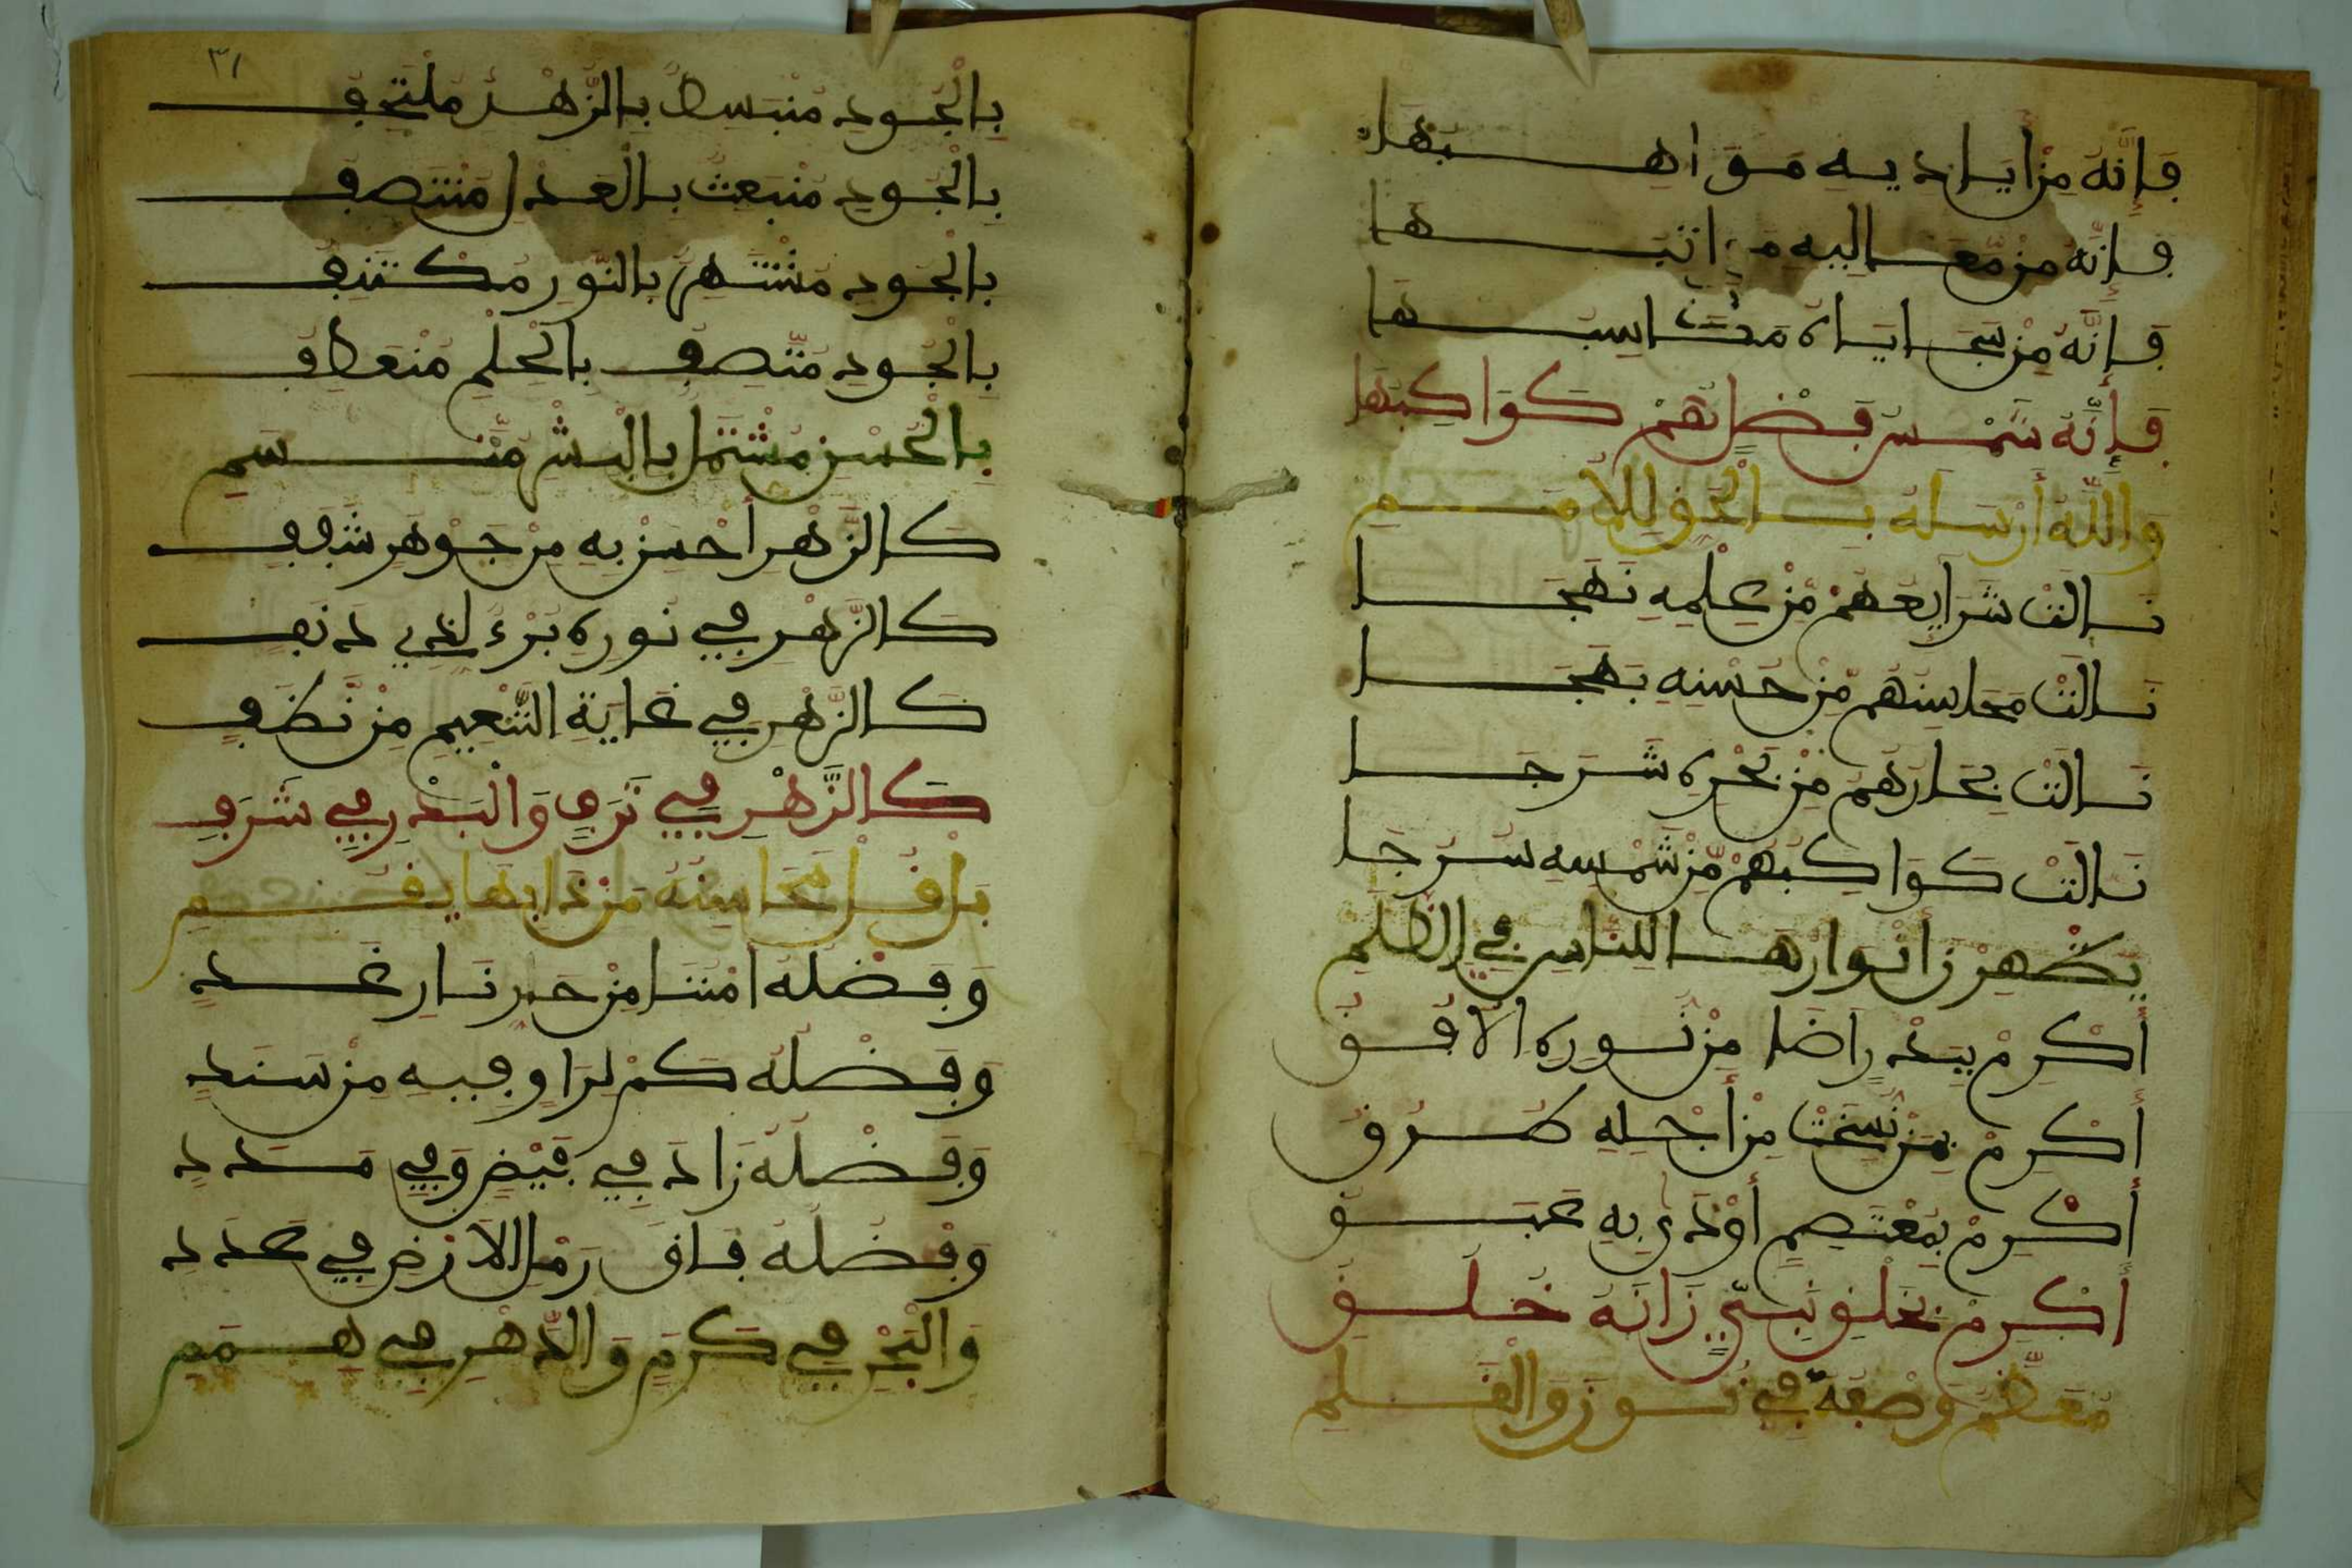 فَإِنَّهُ مِنْ أَيَادِيهِ مَوَاهِبُهَا
فَإِنَّهُ مِنْ مَعَالِيهِ مَرَاتِبُهَا
فَإِنَّهُ مِنْ سَجَايَاهُ مَكَاسِبُهَا
فَإِنَّهُ شَمْسُ فَضْلٍ هُمْ كَوَاكِبُهَا
وَاللَّهُ أَرْسَلَهُ بِالْحَقِّ لِلْأُمَمِ
نَالَتْ شَرَايِعُهُمْ مِنْ عِلْمِهِ نَهَجَا
نَالَتْ مَحَاسِنُهُمْ مِنْ حُسْنِهِ بَهَجَا
نَالَتْ بِحَارُهُمْ مِنْ بَحْرِهِ شَرَجَا
نَالَتْ كَوَاكِبُهُمْ مِنْ شَمْسِهِ سُرُجَا
يُظْهِرْنَ أَنْوَارَهَا لِلنَّاسِ فِي الظُّلَمِ
أَكْرِمْ بِبَدْرٍ أَضَا مِنْ نُورِهِ الْأُفُقُ
أَكْرِمْ بِمَنْ نُسِخَتْ مِنْ أَجْلِهِ طُرُقُ
أَكْرِمْ بِمُعْتَصِمٍ أَوْدَى بِهِ عَبَقُ
أَكْرِمْ بِخَلْقِ نَبِيٍّ زَانَهُ خُلُقُ
مُعَظَّمٌ وَصْفُهُ فِي نُونَ وَالْقَلَمِ
٣١
بِالْجُودِ مُنْبَسِطٌ بِالزَّهْرِ مُلْتَحِفِ
بِالْجُودِ مُنْبَعِثٌ بِالْعَدْلِ مُنْتَصِفِ
بِالْجُودِ مُشْتَهِرٌ بِالنُّورِ مُكْتَنِفِ
بِالْجُودِ مُتَّصِفٍ بِالْحِلْمِ مُنْعَطِفِ
بِالْحُسْنِ مُشْتَمِلٍ بِالْبِشْرِ مُتَّسِمِ
كَالزَّهْرِ أَحْسِنْ بِهِ مِنْ جَوْهَرٍ شَفَفِ
كَالزَّهْرِ فِي نَوْرِهِ بُرْءٌ لِذِي دَنَفِ
كَالزَّهْرِ فِي غَايَةِ التَّنْعِيمِ مِنْ نَظَفٍ
كَالزَّهْرِ فِي تَرَفٍ وَالْبَدْرِ فِي شَرَفِ
بَلْ قُلْ مَحَاسِنُهُ مَنْ ذَا بِهَا يَقُمِ
وَفَضْلُهُ أَمْنُنَا مِنْ حَرِّ نَارِ غَدِ
وَفَضْلُهُ كَمْ لِرَاوٍ فِيهِ مِنْ سَنَدِ
وَفَضْلُهُ زَادَ فِي فَيْضٍ وَفِي مَدَدِ
وَفَضْلُهُ فَاقَ رَمْلَ الْأَرْضِ فِي عَدَدِ
وَالْبَحْرِ فِي كَرَمٍ وَالدَّهْرِ فِي هِمَمِ